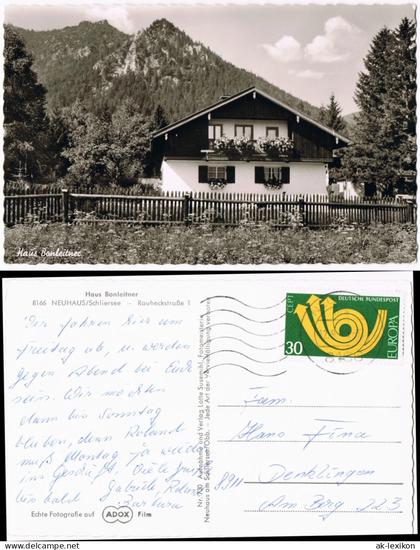 Haus Bonleitner
Haus Bonleitner
8166 NEUHAUS/Schliersee – Rauheckstraße 1
Wir fahren hier am
Freitag ab, u. werden
gegen Abend bei Euch
sein. Wir möchten
dann bis Sonntag
bleiben, denn Roland
muß Montag ja wieder
ins Geschäft. Viele Grüße
bis bald Gabriele, Roland
Barbara
Echte Fotografie auf ADOX Film
Nr. 700 Aufnahme und Verlag Lotte Susemihl, Fotomeisterin
Neuhaus am Schliersee/Obb. – Jede Art der Vervielfältigung verboten
CEPT
DEUTSCHE BUNDESPOST
30
EUROPA
Fam.
Hans Finck
8911 Denklingen
Am Berg 223
© ak-lexikon